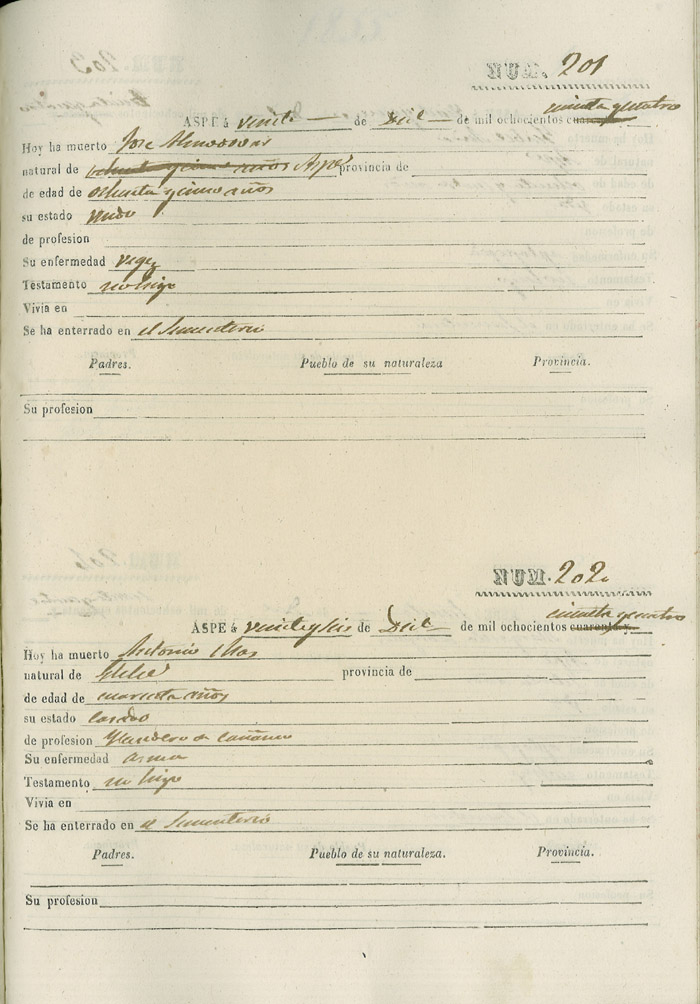 NUM. 201
cincuenta y cuatro
ASPE á veinte de Dbre de mil ochocientos cuarenta
Hoy ha muerto Jose Almodovar
natural de ochenta y cinco años Aspe provincia de
de edad de ochenta y cinco años
su estado viudo
de profesion
Su enfermedad vegez
Testamento no hizo
Vivia en
Se ha enterrado en el Sementerio
Padres. Pueblo de su naturaleza Provincia.
Su profesion
NUM. 202
cincuenta y cuatro
ASPE á de Dbre de mil ochocientos cuarenta y
Hoy ha muerto Antonio Mas
natural de Elche provincia de
de edad de cuarenta años
su estado casado
de profesion de cañamo
Su enfermedad asma
Testamento no hizo
Vivia en
Se ha enterrado en el Sementerio
Padres. Pueblo de su naturaleza. Provincia.
Su profesion